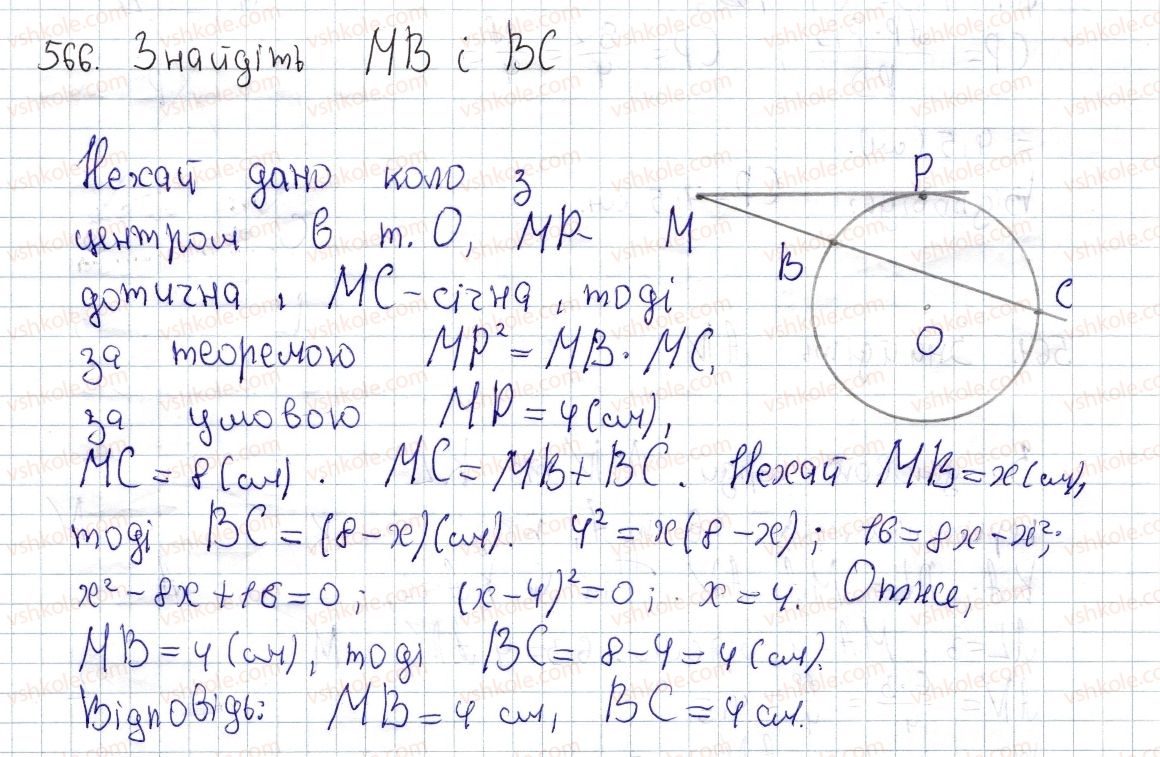 566. Знайдіть MB і BC
Нехай дано коло з
центром в т. O, MP-
дотична, MC-січна, тоді
за теоремою MP² = MB · MC,
за умовою MP = 4 (см),
MC = 8 (см). MC = MB + BC. Нехай MB = x (см),
тоді BC = (8-x)(см). 4² = x(8-x); 16 = 8x - x²;
x² - 8x + 16 = 0; (x-4)² = 0; x = 4. Отже,
MB = 4 (см), тоді BC = 8-4 = 4 (см).
Відповідь: MB = 4 см, BC = 4 см.
P
M
B
C
O
vshkole.com